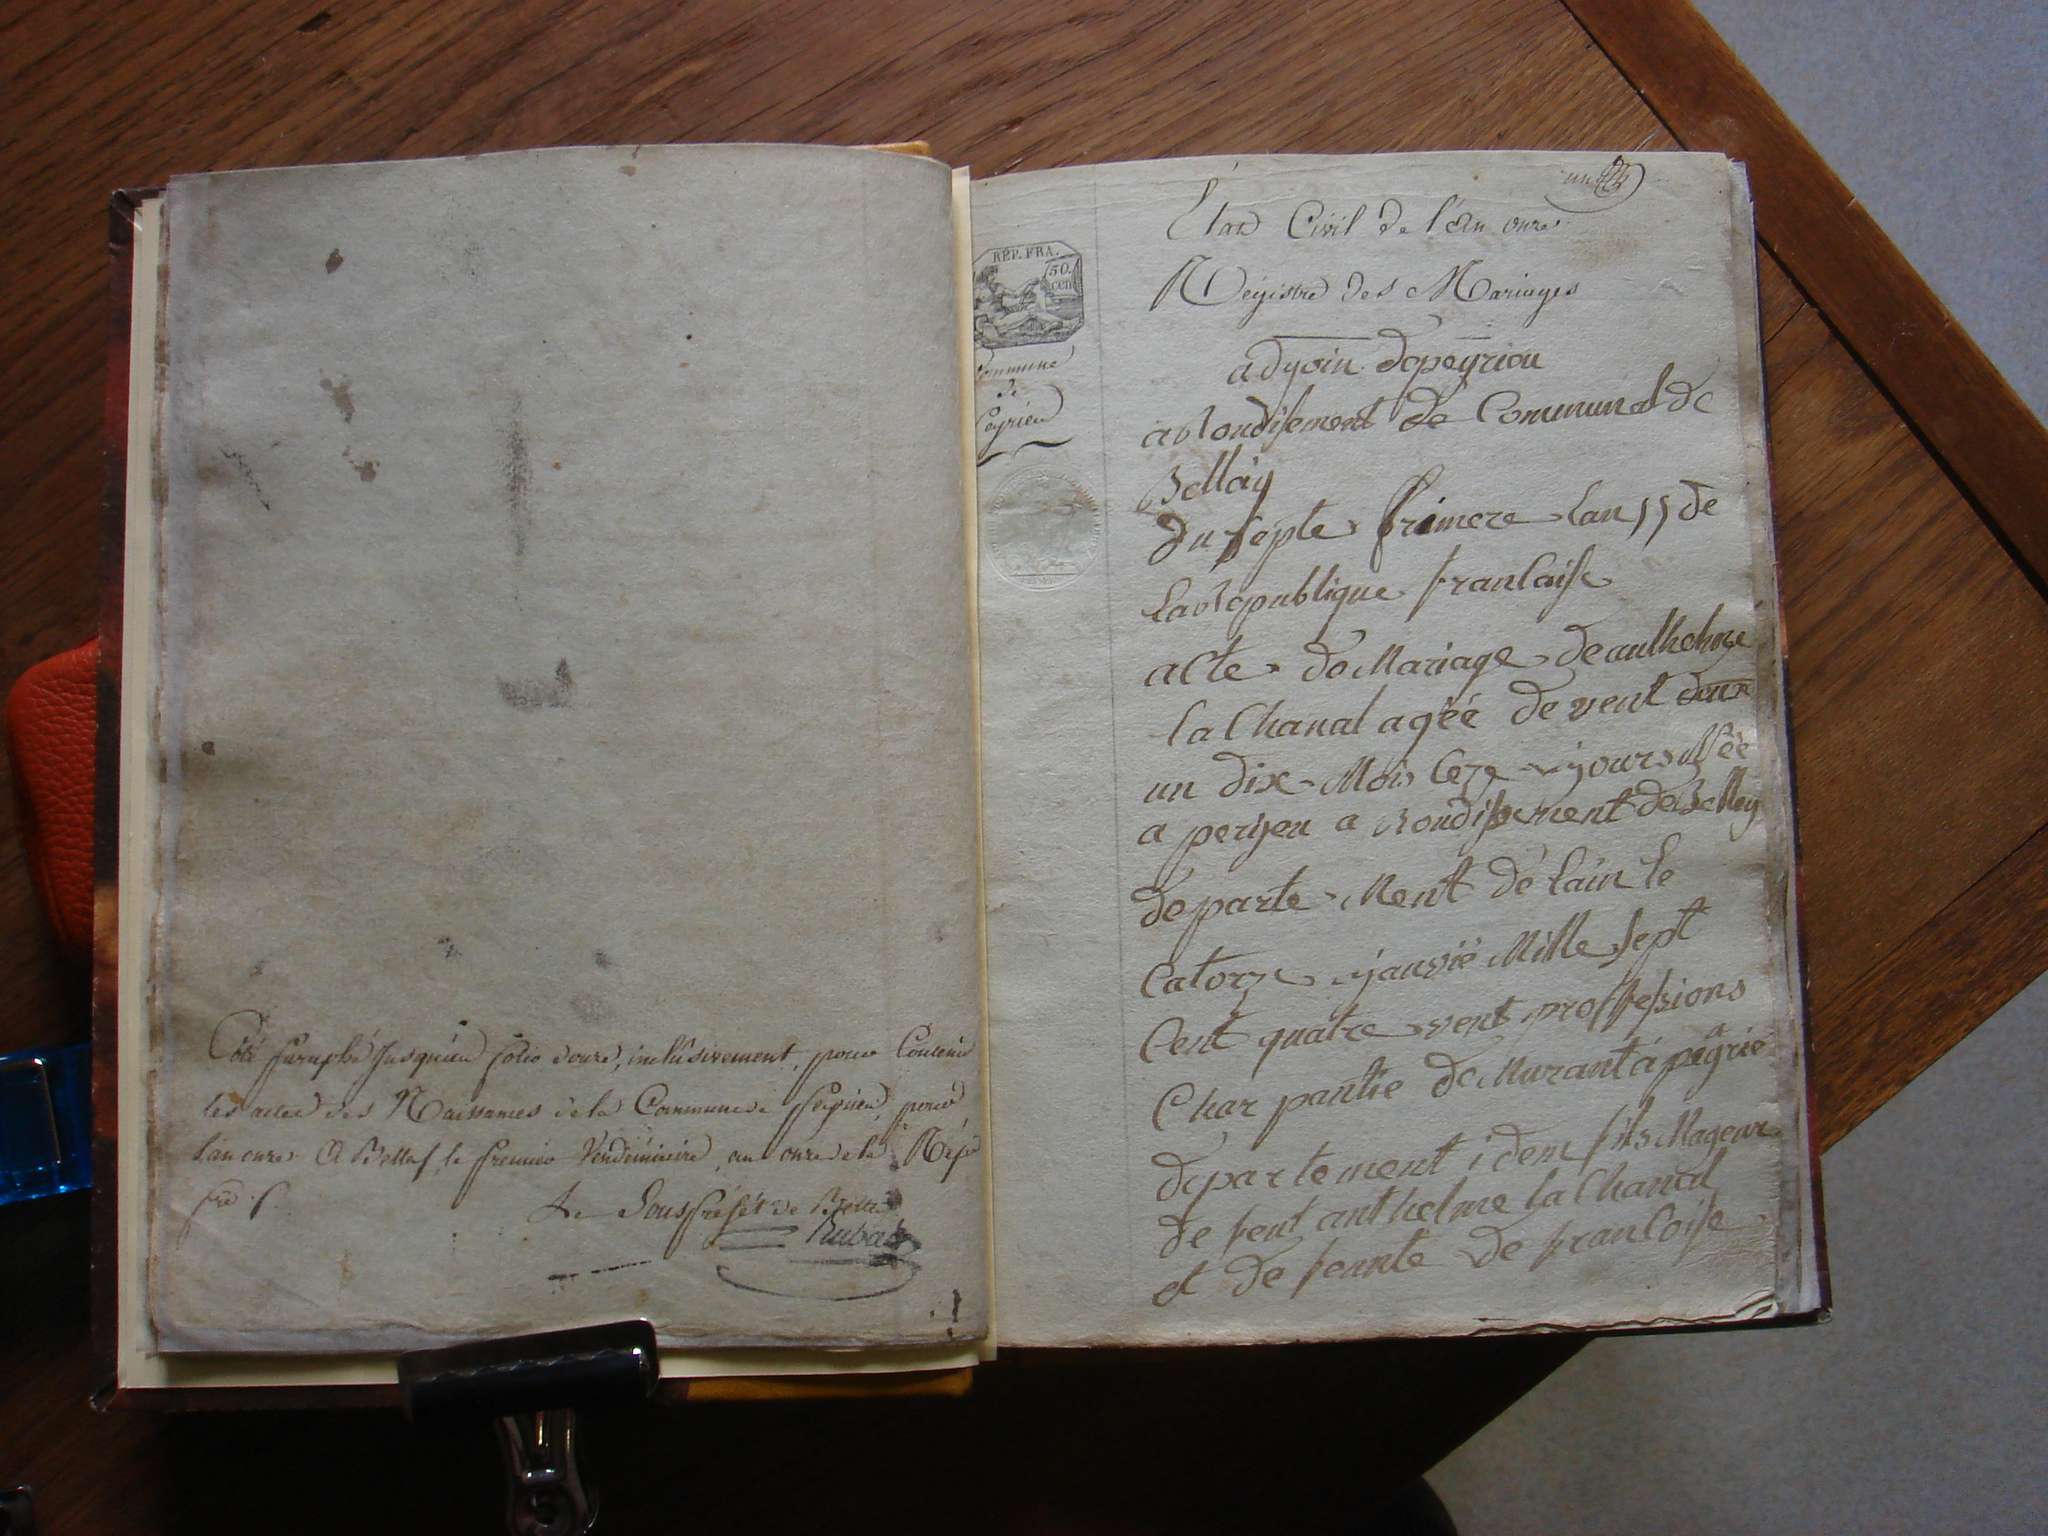 Coté paraphé Jusqu'au folio douze, inclusivement, pour Contenir
les actes des Naissances de la Commune de Peyrieu, pour
l'an onze. A Belley, le premier Vendémiaire, an onze de la Rép.
fre.
Le Sous préfet de Belley
Rubat
un
REP. FRA.
50.
cen
Commune
de
Peyrieu
Etat Civil de l'an onze
Régistre des Mariages
adyoin depeyrieu
arondisement de Communal de
Bellay
du septe frimere lan 11 de
la republique francaise
acte de Mariage de anthelme
la Chanal agéé de vent deux
un dix Mois seze jours Née
a perijeu a rondissement de Belley
departe Ment de lain le
Catorze janvié Mille sept
Cent quatre vent proffessions
Charpantié deMurant a peyrie
departement idem fils Mageur
de feut anthelme la Chanal
et de feunte de francoise